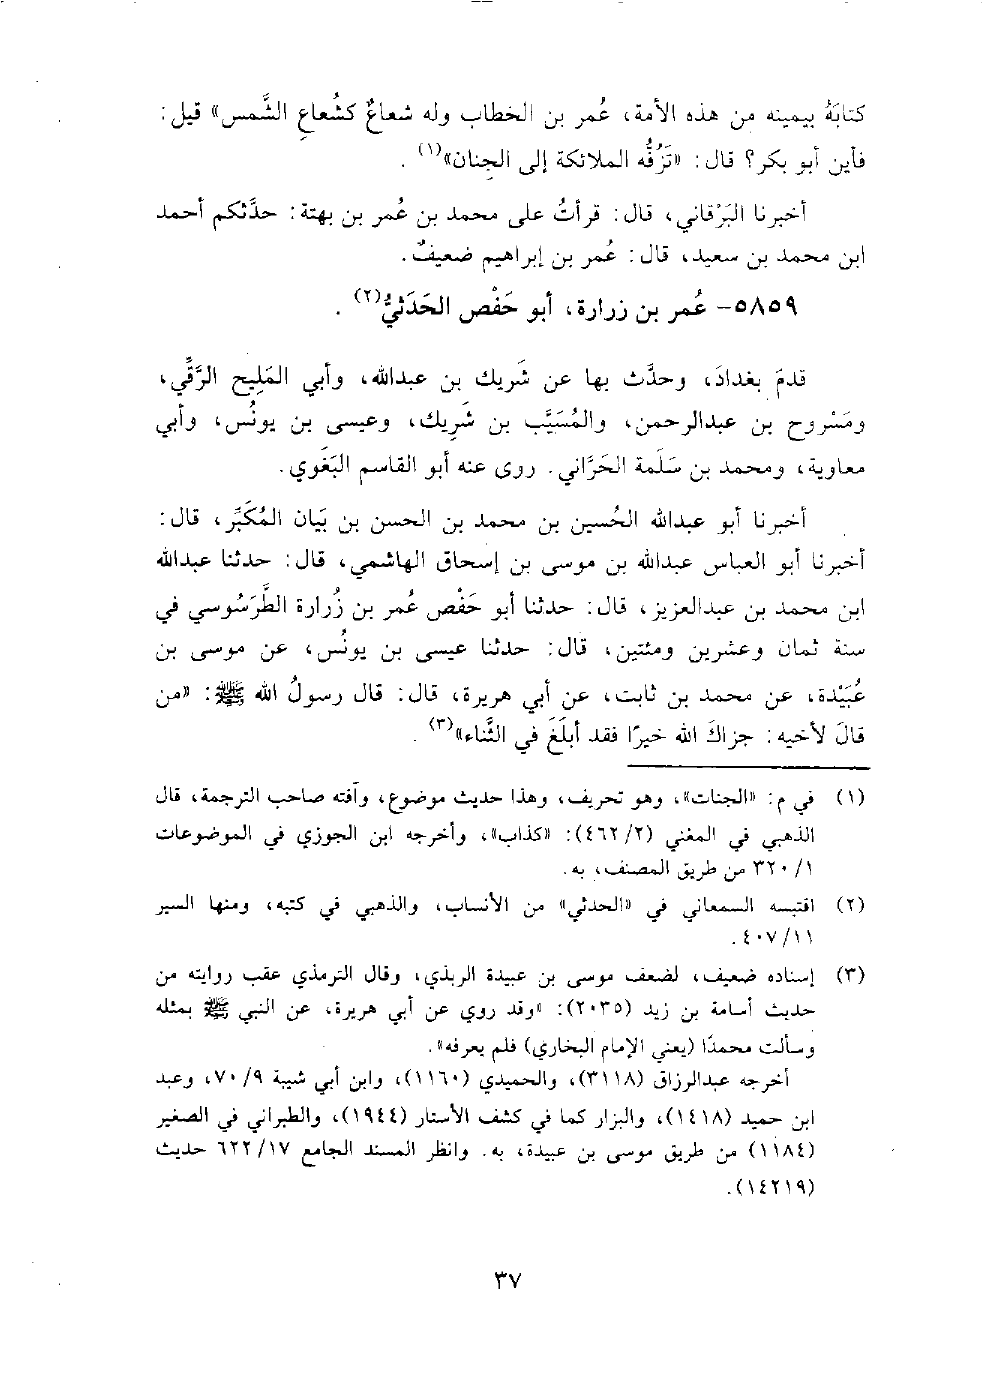 كتابَهُ بيمينه من هذه الأمة، عُمر بن الخطاب وله شعاعٌ كشُعاعِ الشَّمس» قيل:
فأين أبو بكر؟ قال: «تَزُفُّه الملائكة إلى الجِنان»(١).
أخبرنا البَرْقاني، قال: قرأتُ على محمد بن عُمر بن بهتة: حدَّثكم أحمد
ابن محمد بن سعيد، قال: عُمر بن إبراهيم ضعيفٌ.
٥٨٥٩- عُمر بن زرارة، أبو حَفْص الحَدَثيُّ(٢).
قدمَ بغدادَ، وحدَّث بها عن شَريك بن عبدالله، وأبي المَلِيح الرَّقِّي،
ومَسْروح بن عبدالرحمن، والمُسَيَّب بن شَريك، وعيسى بن يونُس، وأبي
معاوية، ومحمد بن سَلَمة الحَرَّاني. روى عنه أبو القاسم البَغَوي.
أخبرنا أبو عبدالله الحُسين بن محمد بن الحسن بن بَيان المُكَبِّر، قال:
أخبرنا أبو العباس عبدالله بن موسى بن إسحاق الهاشمي، قال: حدثنا عبدالله
ابن محمد بن عبدالعزيز، قال: حدثنا أبو حَفْص عُمر بن زُرارة الطَّرَسُوسي في
سنة ثمان وعشرين ومئتين، قال: حدثنا عيسى بن يونُس، عن موسى بن
عُبَيْدة، عن محمد بن ثابت، عن أبي هريرة، قال: قال رسولُ الله ﷺ: «من
قالَ لأخيه: جزاكَ الله خيرًا فقد أبلَغَ في الثَّناء»(٣).
(١) في م: «الجنات»، وهو تحريف، وهذا حديث موضوع، وآفته صاحب الترجمة، قال
الذهبي في المغني (٢/ ٤٦٢): «كذاب»، وأخرجه ابن الجوزي في الموضوعات
١/ ٣٢٠ من طريق المصنف، به.
(٢) اقتبسه السمعاني في «الحدثي» من الأنساب، والذهبي في كتبه، ومنها السير
١١/ ٤٠٧.
(٣) إسناده ضعيف، لضعف موسى بن عبيدة الربذي، وقال الترمذي عقب روايته من
حديث أسامة بن زيد (٢٠٣٥): «وقد روي عن أبي هريرة، عن النبي ﷺ بمثله
وسألت محمدًا (يعني الإمام البخاري) فلم يعرفه».
أخرجه عبدالرزاق (٣١١٨)، والحميدي (١١٦٠)، وابن أبي شيبة ٩/ ٧٠، وعبد
ابن حميد (١٤١٨)، والبزار كما في كشف الأستار (١٩٤٤)، والطبراني في الصغير
(١١٨٤) من طريق موسى بن عبيدة، به. وانظر المسند الجامع ١٧/ ٦٢٢ حديث
(١٤٢١٩).
٣٧